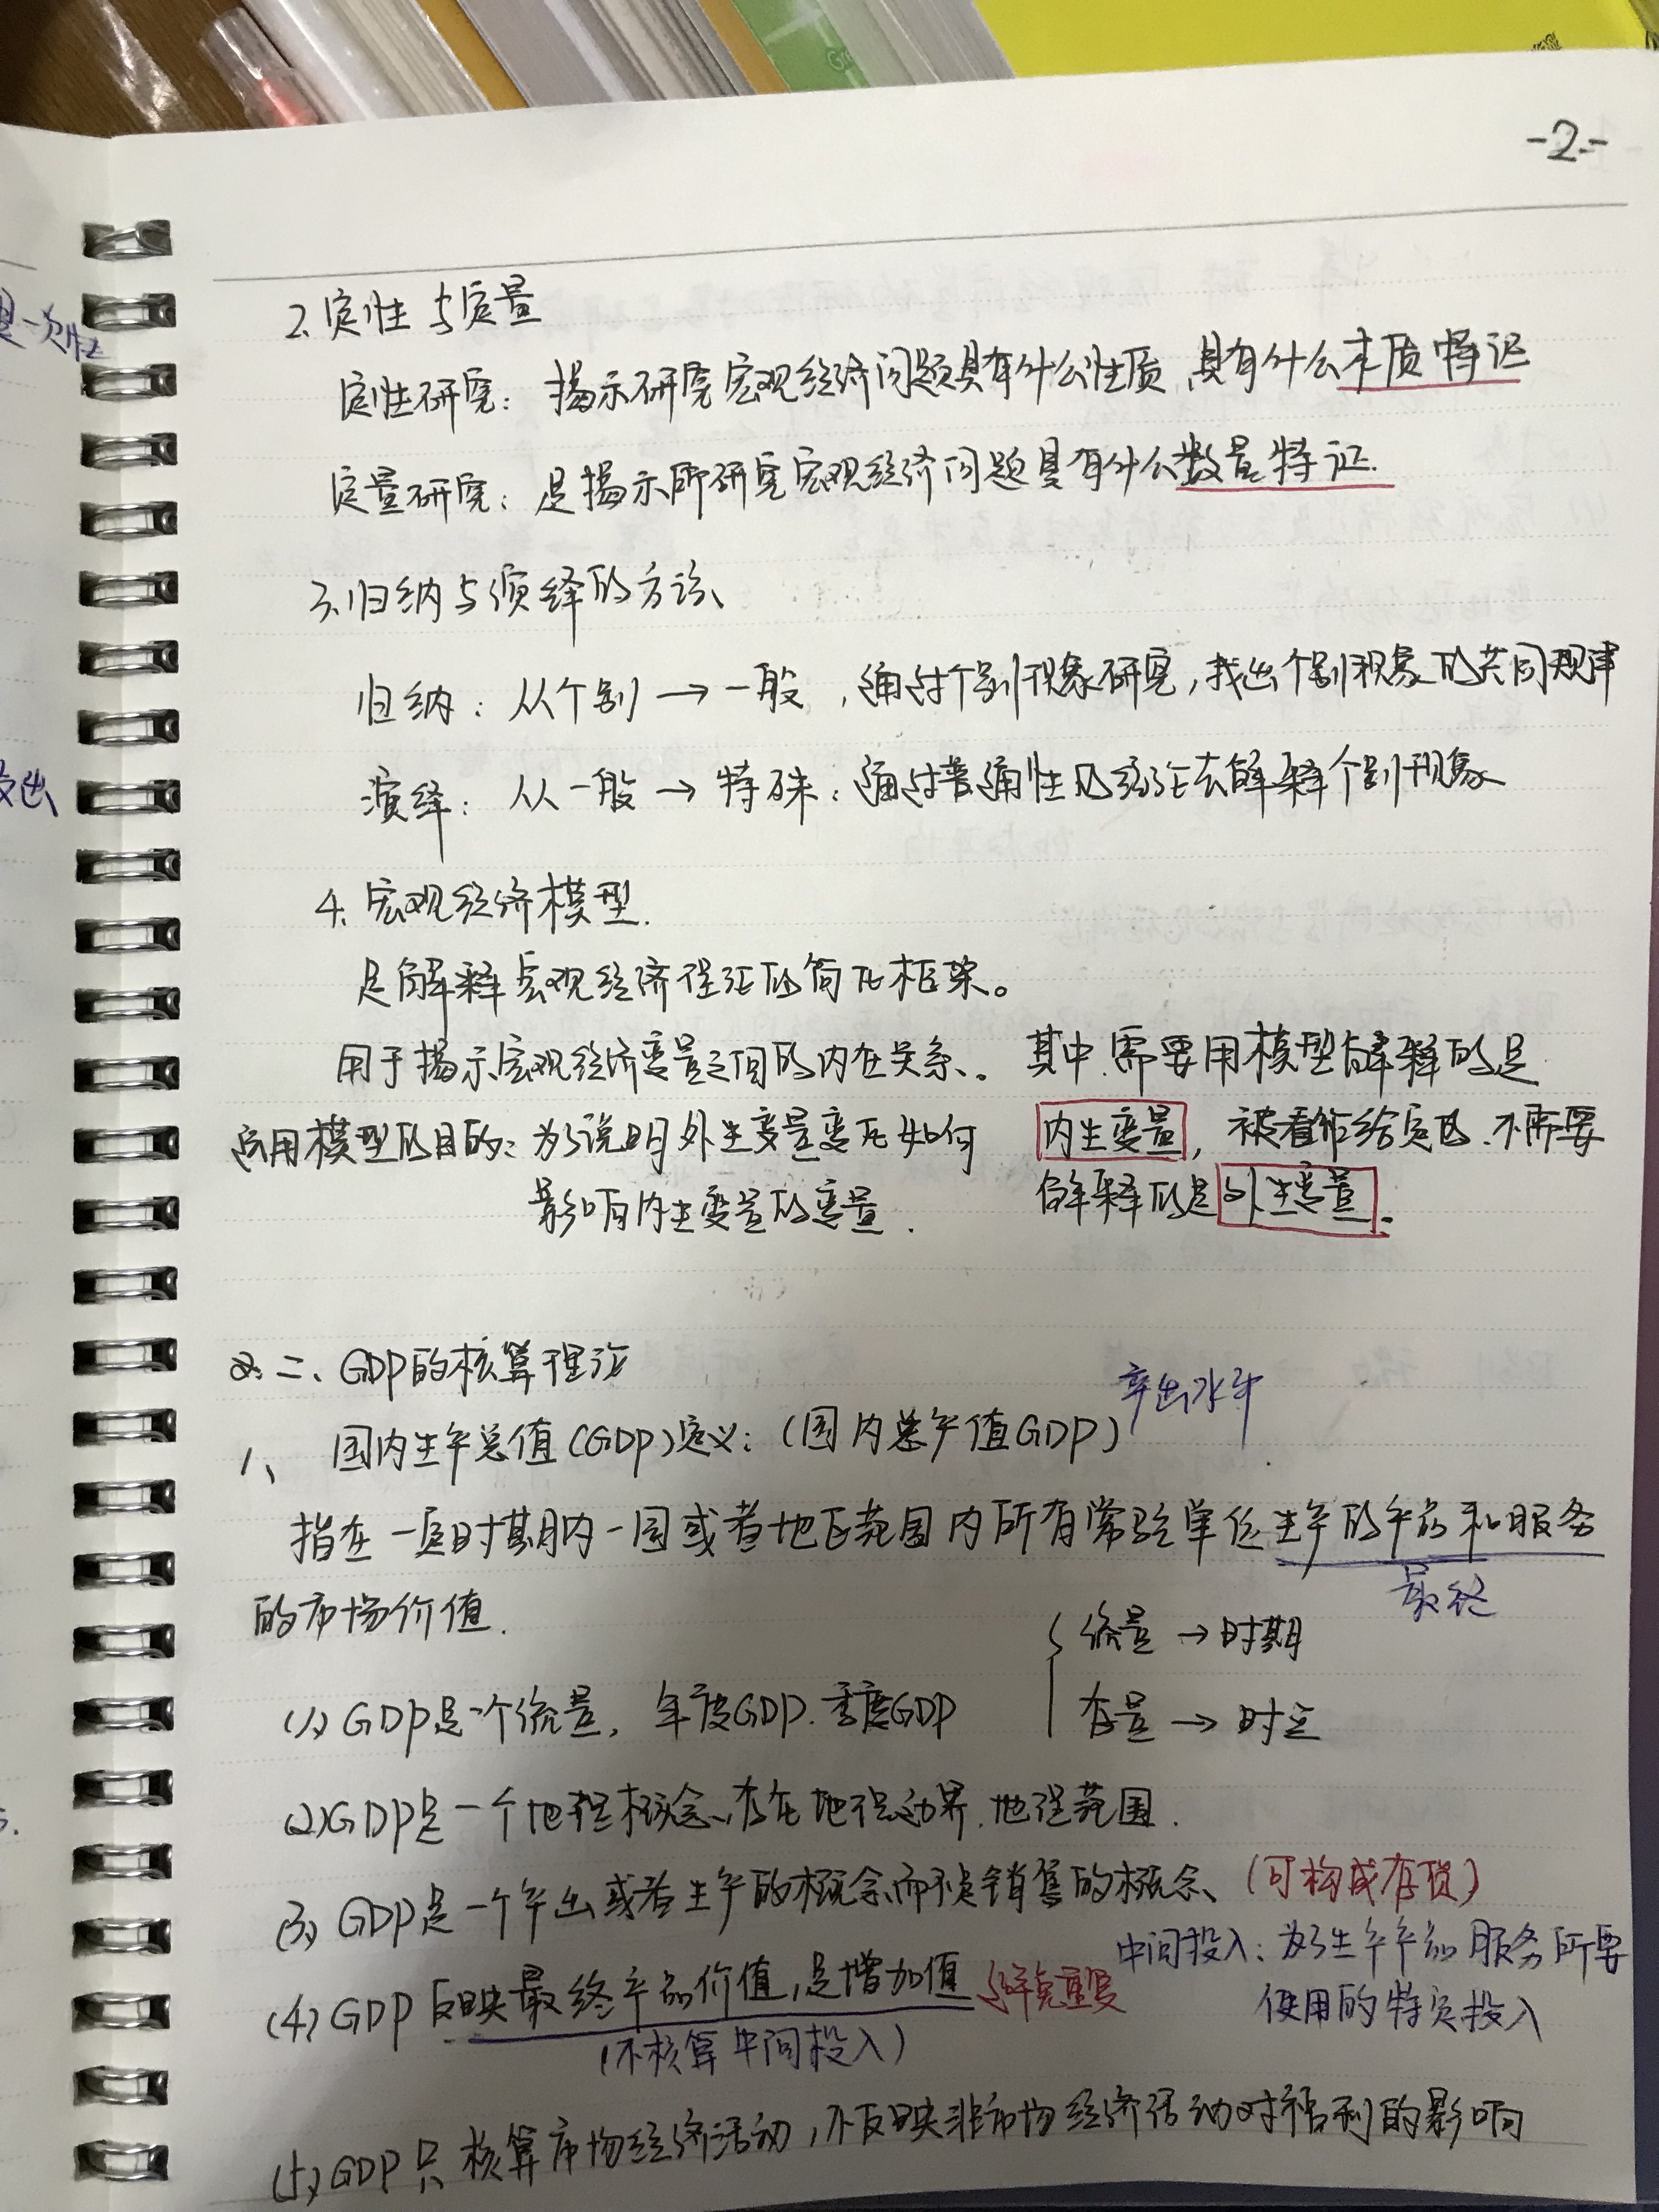 -2-
2. 定性与定量
定性研究：揭示研究宏观经济问题具有什么性质，具有什么本质特证
定量研究：是揭示所研究宏观经济问题具有什么数量特证.
3. 归纳与演绎的方法、
归纳：从个别→一般，通过个别现象研究，找出个别现象的共同规律
演绎：从一般→特殊：通过普通性的结论去解释个别现象
4. 宏观经济模型.
是解释宏观经济理论的简化框架。
用于揭示宏观经济变量之间的内在关系。 其中.需要用模型解释的是
应用模型的目的：为了说明外生变量变化如何 内生变量，被看作给定的.不需要
影响内生变量的变量. 解释的是外生变量.
二、GDP的核算理论
产出水平
1、国内生产总值(GDP)定义：(国内总产值GDP)
指在一定时期内一国或者地区范围内所有常驻单位生产的产品和服务
最终
的市场价值.
流量→时期
(1) GDP是一个流量，年度GDP.季度GDP
存量→时点
(2) GDP是一个地理概念、存在地理边界.地理范围.
(3) GDP是一个产出或者生产的概念而不是销售的概念、(可构成存货)
中间投入：为了生产产品服务所要
(4) GDP反映最终产品价值，是增加值 避免重复
使用的特定投入
(不核算中间投入)
(5) GDP只核算市场经济活动，不反映非市场经济活动对福利的影响